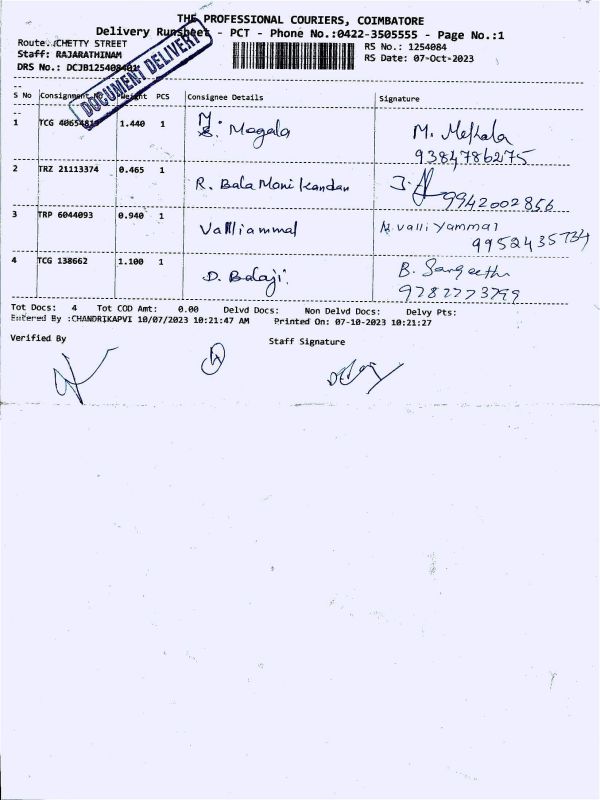 THE PROFESSIONAL COURIERS, COIMBATORE
Delivery Runsheet - PCT - Phone No.:0422-3505555 - Page No.:1
Route.:CHETTY STREET
RS No.: 1254084
Staff: RAJARATHINAM
RS Date: 07-Oct-2023
DRS No.: DCJB125408401
DOCUMENT DELIVERY
S No Consignment No Weight PCS Consignee Details Signature
1 TCG 1.440 1 Magala M. Mekala
9384786275
2 TRZ 21113374 0.465 1 R. Bala Moni kandan
9942002856
3 TRP 6044093 0.940 1 Valliammal M. valliyammal
9952435734
4 TCG 138662 1.100 1 D. Balaji. B. Sangeetha
9282273799
Tot Docs: 4 Tot COD Amt: 0.00 Delvd Docs: Non Delvd Docs: Delvy Pts:
Entered By :CHANDRIKAPVI 10/07/2023 10:21:47 AM Printed On: 07-10-2023 10:21:27
Verified By Staff Signature